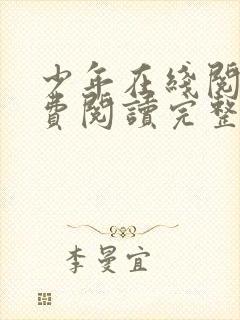 少年在綫閱
費閱讀完整
李曼宜